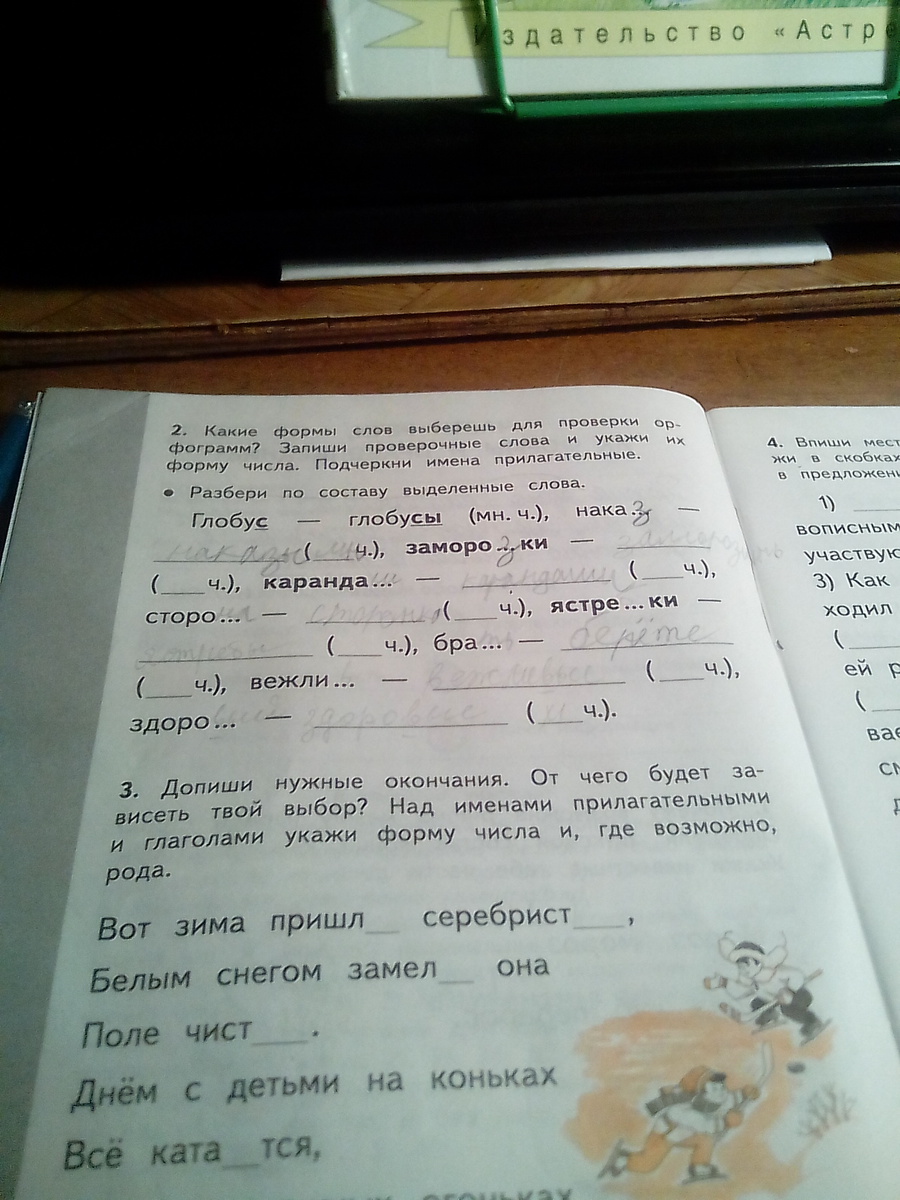 Издательство «Астре
2. Какие формы слов выберешь для проверки ор-
фограмм? Запиши проверочные слова и укажи их
форму числа. Подчеркни имена прилагательные.
• Разбери по составу выделенные слова.
Глобус — глобусы (мн. ч.), нака...з —
наказы (мн ч.), заморо...з ки —
(___ч.), каранда... — карандаши (___ч.),
сторо... — стороны (___ч.), ястре...ки —
ястребы (___ч.), бра... — берёте
(___ч.), вежли... — вежливые (___ч.),
здоро... — здоровые (___ч.).
3. Допиши нужные окончания. От чего будет за-
висеть твой выбор? Над именами прилагательными
и глаголами укажи форму числа и, где возможно,
рода.
Вот зима пришл__ серебрист___,
Белым снегом замел__ она
Поле чист___.
Днём с детьми на коньках
Всё ката__тся,
огоньках
4. Впиши мест
жи в скобках
в предложени
1)
вописным
участвую
3) Как
ходил
(
ей р
(
вае
см